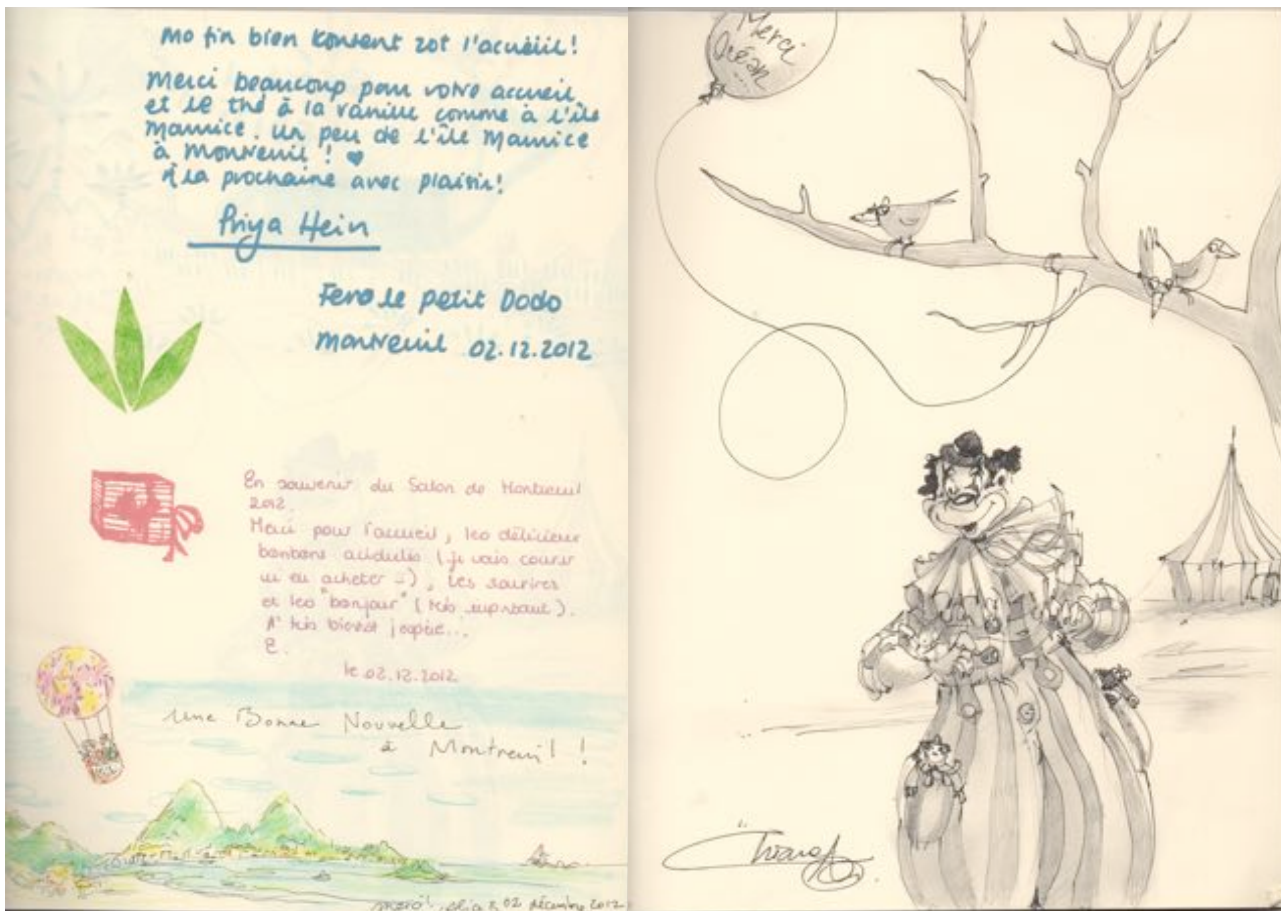 Mo fin bien kontent zot l'acuéiil!
Merci beaucoup pour votre accueil
et le thé à la vanille comme à l'île
Maurice. Un peu de l'île Maurice
à Montreuil !
A la prochaine avec plaisir!
Priya Hein
Feno le petit Dodo
Montreuil 02.12.2012
En souvenir du Salon de Montreuil
2012.
Merci pour l'accueil, les délicieux
bonbons acidulés (je vais courir
en acheter), les sourires
et les "bonjour" (très important).
A très bientôt j'espère...
le 02.12.2012
Une Bonne Nouvelle
à Montreuil !
merci! 02 décembre 2012
Merci
Océan